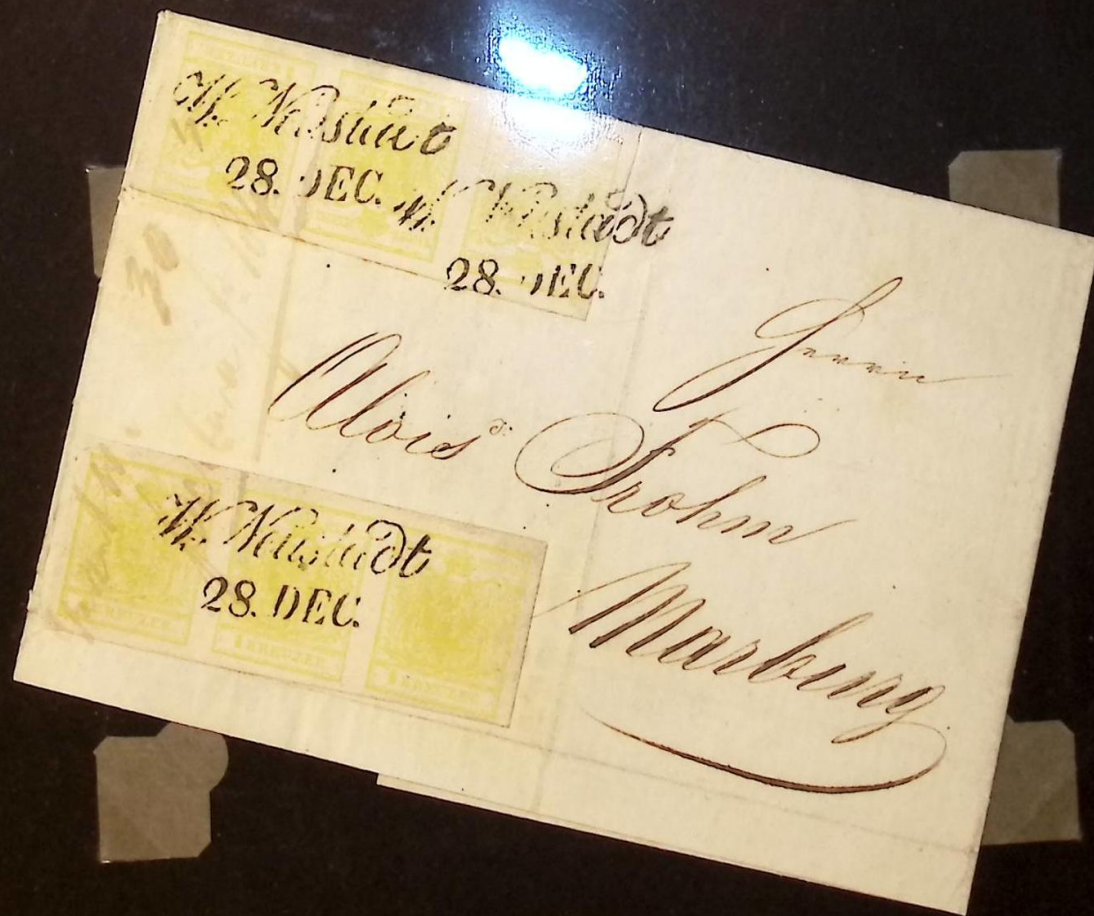 W. Neustadt
28. DEC.
W. Neustadt
28. DEC.
Herrn
Alois Frohm
Marburg
W. Neustadt
28. DEC.
KREUZER
1 KREUZER
1 KREUZER